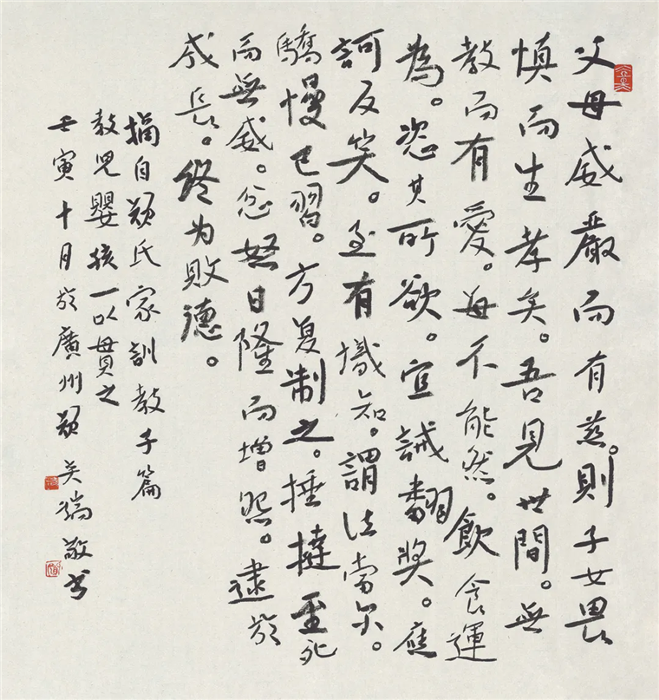 父母威嚴而有慈。則子女畏
慎而生孝矣。吾見世間。無
教而有愛。每不能然。飲食運
為。恣其所欲。宜誡翻獎。應
訶反笑。至有識知。謂法當尔。
驕慢已習。方复制之。捶撻至死
而無威。忿怒日隆而增怨。逮於
成長。终为敗德。
摘自颜氏家訓教子篇
教児嬰孩一以貫之
壬寅十月於廣州